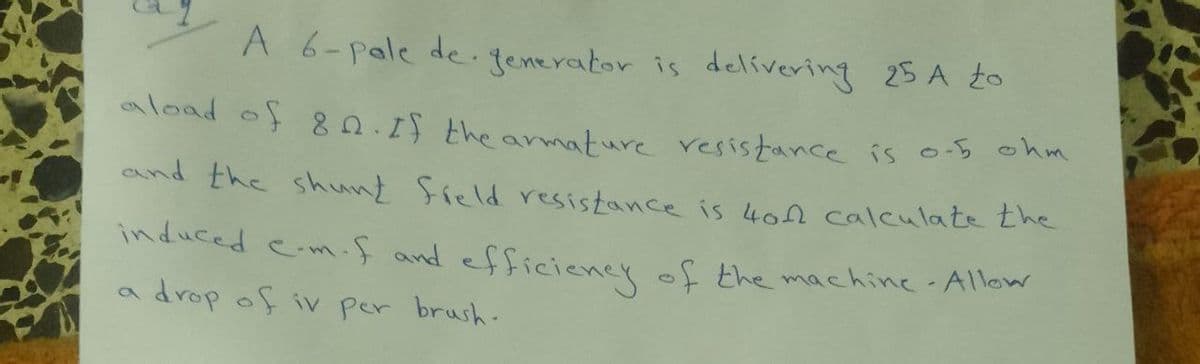 A 6-pole dc. generator is delivering 25 A to
a load of 8 Ω. If the armature resistance is 0.5 ohm
and the shunt field resistance is 40Ω calculate the
induced e.m.f and efficiency of the machine - Allow
a drop of 1v per brush.